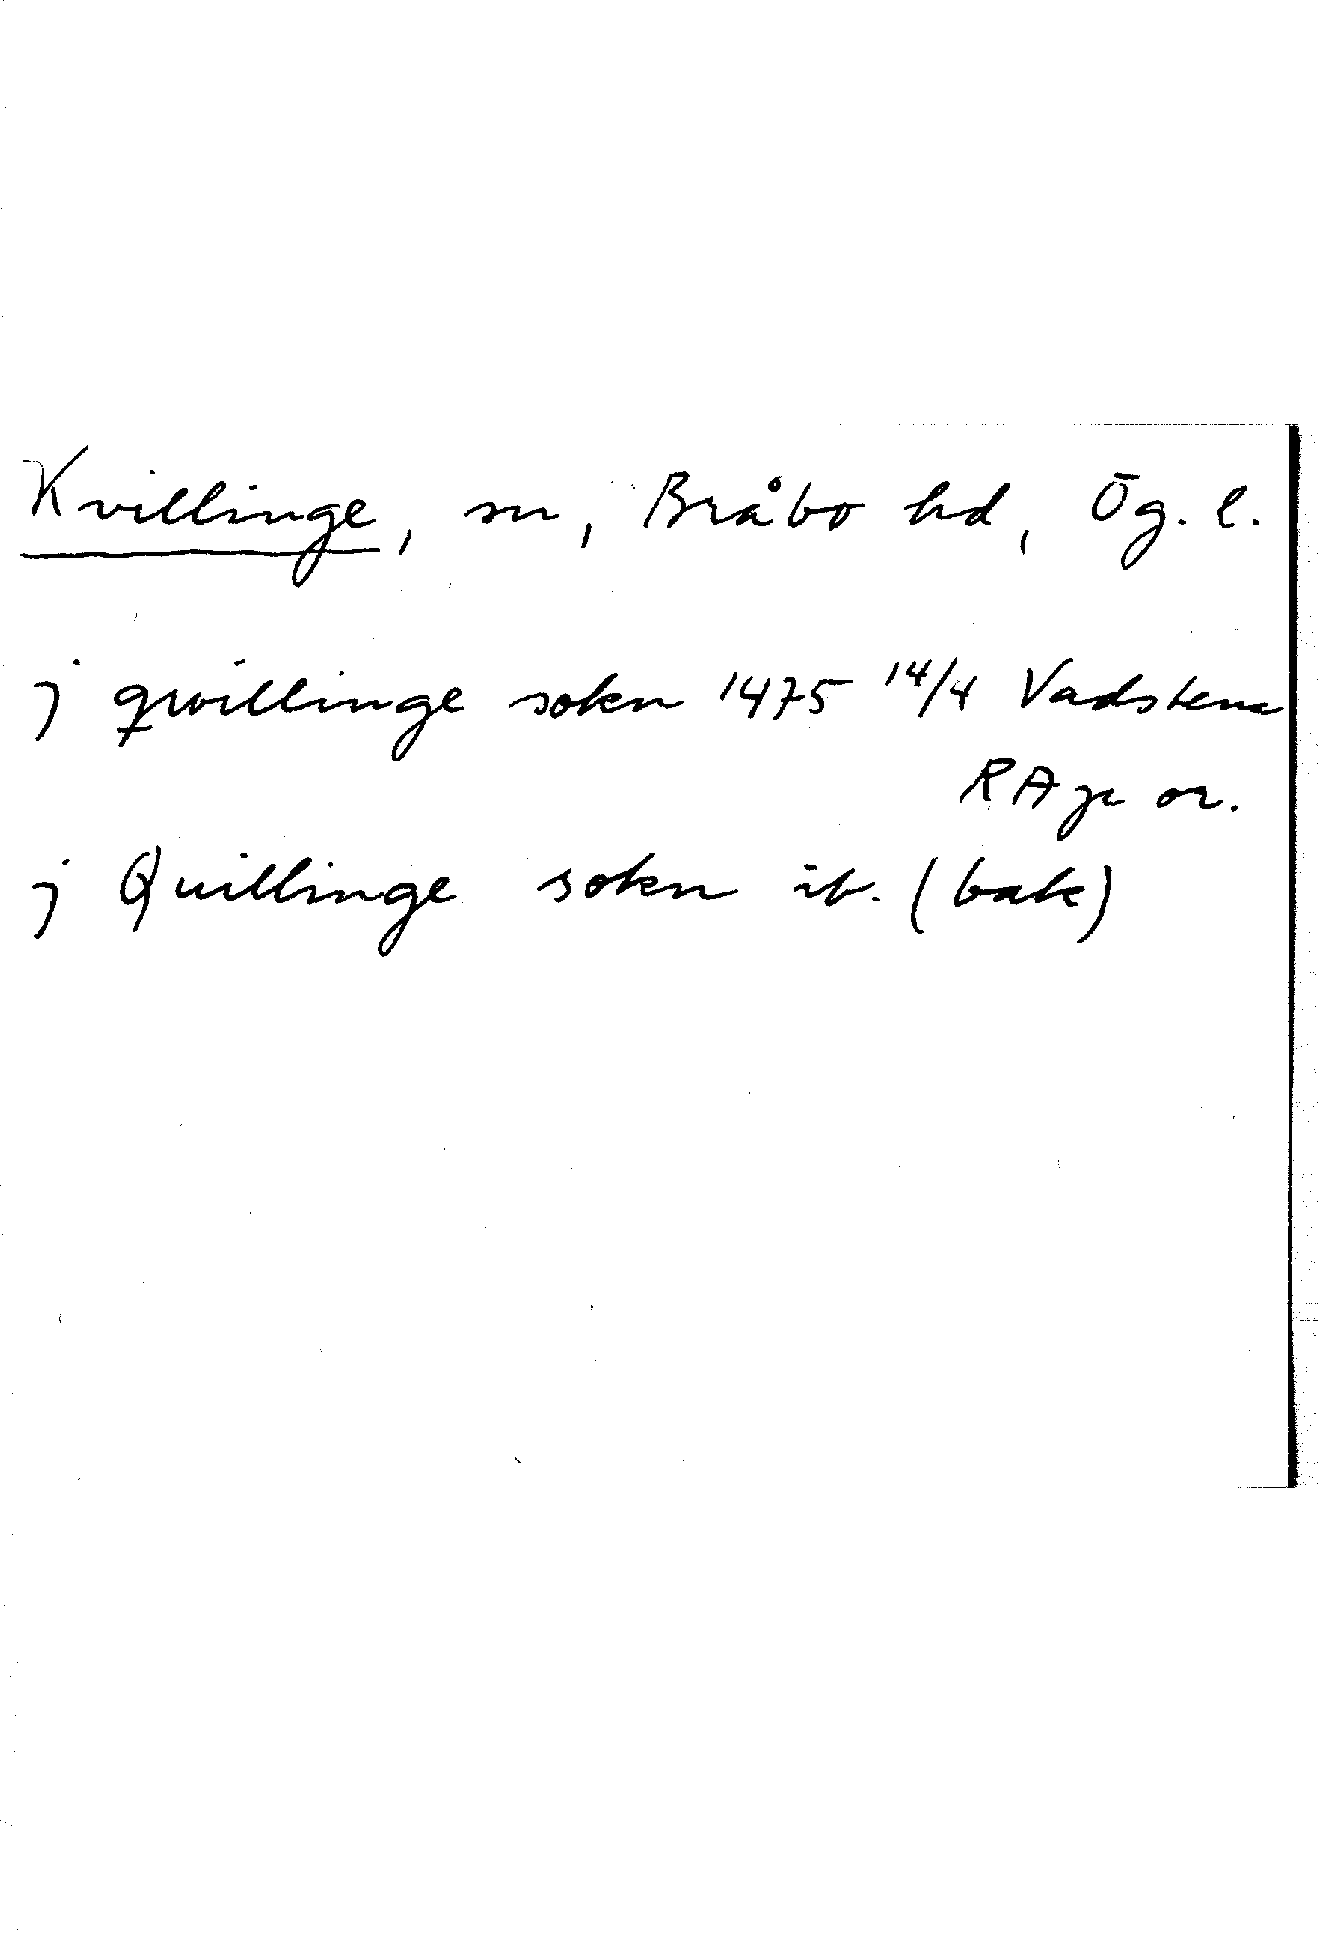 Kvillinge, sn, Bråbo hd, Ög. l.
j qwillinge sokn 1475 14/4 Vadstena
RAp or.
j Quillinge sokn ib. (bak)